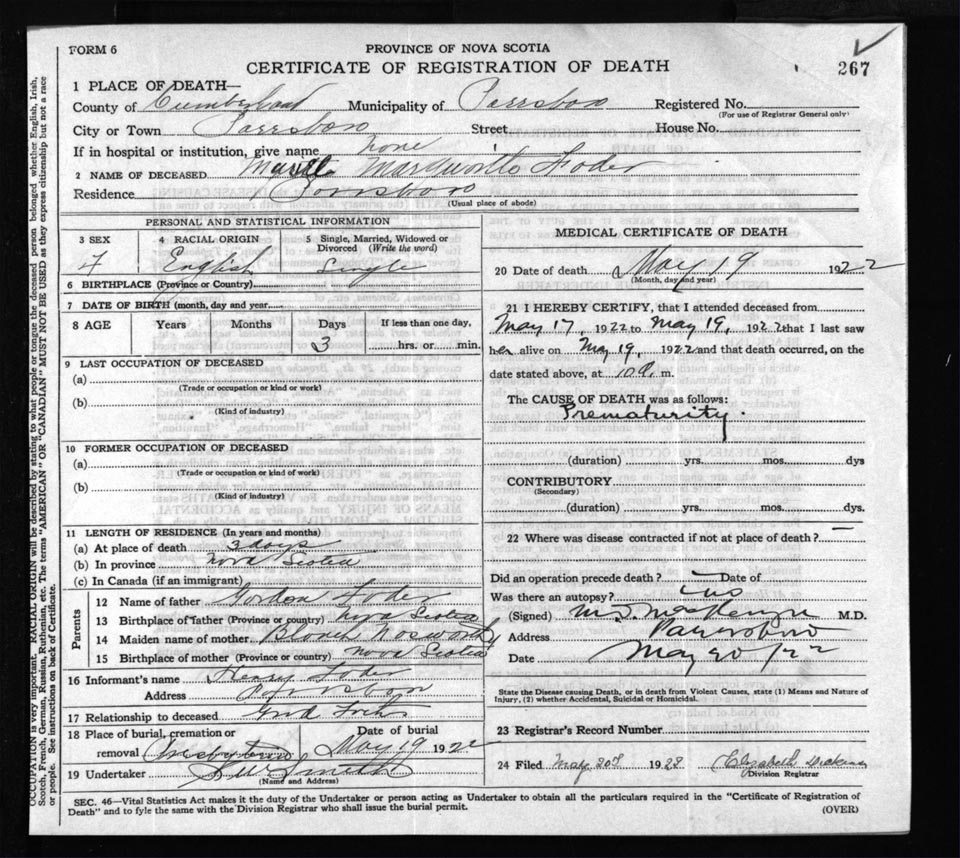 FORM 6
PROVINCE OF NOVA SCOTIA
CERTIFICATE OF REGISTRATION OF DEATH
267
1 PLACE OF DEATH—
County of Cumberland Municipality of Parrsboro Registered No.
(For use of Registrar General only)
City or Town Parrsboro Street House No.
If in hospital or institution, give name none
2 NAME OF DECEASED
Residence Parrsboro
(Usual place of abode)
PERSONAL AND STATISTICAL INFORMATION
3 SEX 4 RACIAL ORIGIN 5 Single, Married, Widowed or Divorced (Write the word)
F English Single
6 BIRTHPLACE (Province or Country)
7 DATE OF BIRTH (month, day and year)
8 AGE Years Months Days If less than one day,
3 hrs. or min.
9 LAST OCCUPATION OF DECEASED
(a)
(Trade or occupation or kind or work)
(b)
(Kind of industry)
10 FORMER OCCUPATION OF DECEASED
(a)
(Trade or occupation or kind of work)
(b)
(Kind of industry)
11 LENGTH OF RESIDENCE (In years and months)
(a) At place of death 3 days
(b) In province Nova Scotia
(c) In Canada (if an immigrant)
Parents
12 Name of father Gordon
13 Birthplace of father (Province or country) Nova Scotia
14 Maiden name of mother Nosworthy
15 Birthplace of mother (Province or country) Nova Scotia
16 Informant's name Henry
Address Parrsboro
17 Relationship to deceased
18 Place of burial, cremation or removal Date of burial May 19 1922
19 Undertaker Smith
(Name and Address)
MEDICAL CERTIFICATE OF DEATH
20 Date of death May 19 1922
(Month, day and year)
21 I HEREBY CERTIFY, that I attended deceased from
May 17, 1922 to May 19, 1922 that I last saw
her alive on May 19, 1922 and that death occurred, on the
date stated above, at 10 m.
The CAUSE OF DEATH was as follows:
Prematurity.
(duration) yrs. mos. dys
CONTRIBUTORY
(Secondary)
(duration) yrs. mos. dys.
22 Where was disease contracted if not at place of death? —
Did an operation precede death? Date of
Was there an autopsy? no
(Signed) MacKenzie M.D.
Address Parrsboro
Date May 20/22
State the Disease causing Death, or in death from Violent Causes, state (1) Means and Nature of
Injury, (2) whether Accidental, Suicidal or Homicidal.
23 Registrar's Record Number
24 Filed May 20 1922 Elizabeth
Division Registrar
SEC. 46—Vital Statistics Act makes it the duty of the Undertaker or person acting as Undertaker to obtain all the particulars required in the "Certificate of Registration of
Death" and to fyle the same with the Division Registrar who shall issue the burial permit.
(OVER)
OCCUPATION is very important. RACIAL ORIGIN will be described by stating to what people or tongue the deceased person belonged whether English, Irish,
Scotch, French, German, Russian, Ruthenian, etc. The terms "AMERICAN" OR "CANADIAN" MUST NOT BE USED as they express citizenship but not a race
or people. See instructions on back of Certificate.